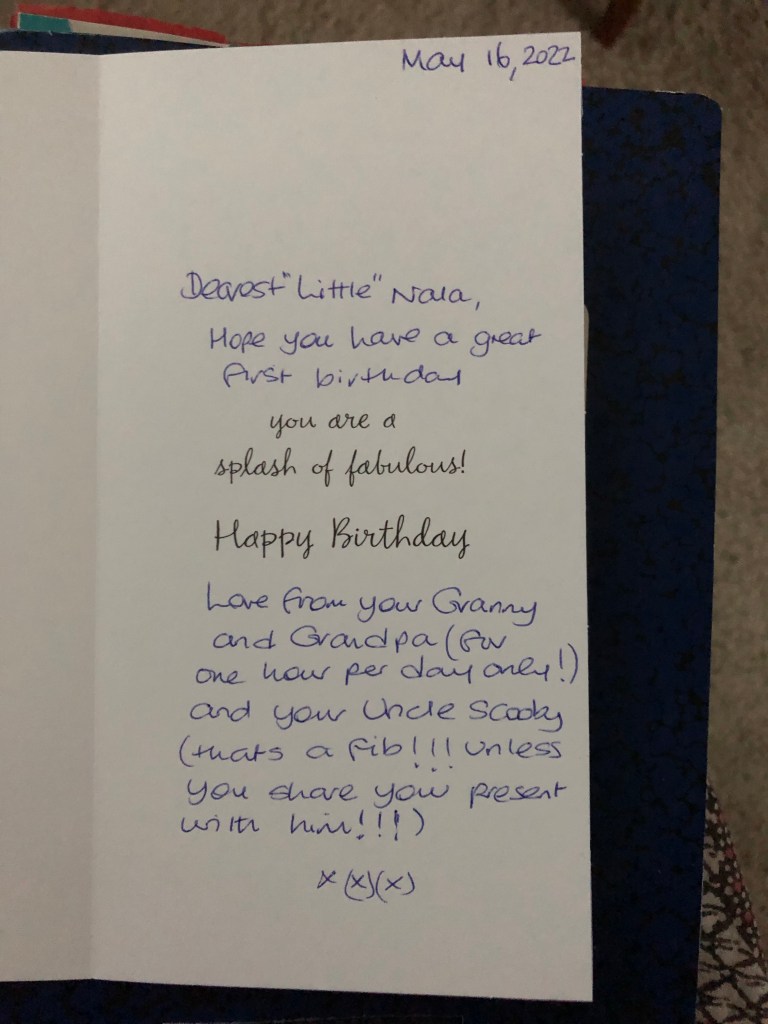 May 16, 2022
Dearest "Little" Nala,
Hope you have a great
first birthday
you are a
splash of fabulous!
Happy Birthday
Love from your Granny
and Grandpa (for
one hour per day only!)
and your Uncle Scooby
(thats a fib!!! unless
you share your present
with him!!!)
x (x)(x)